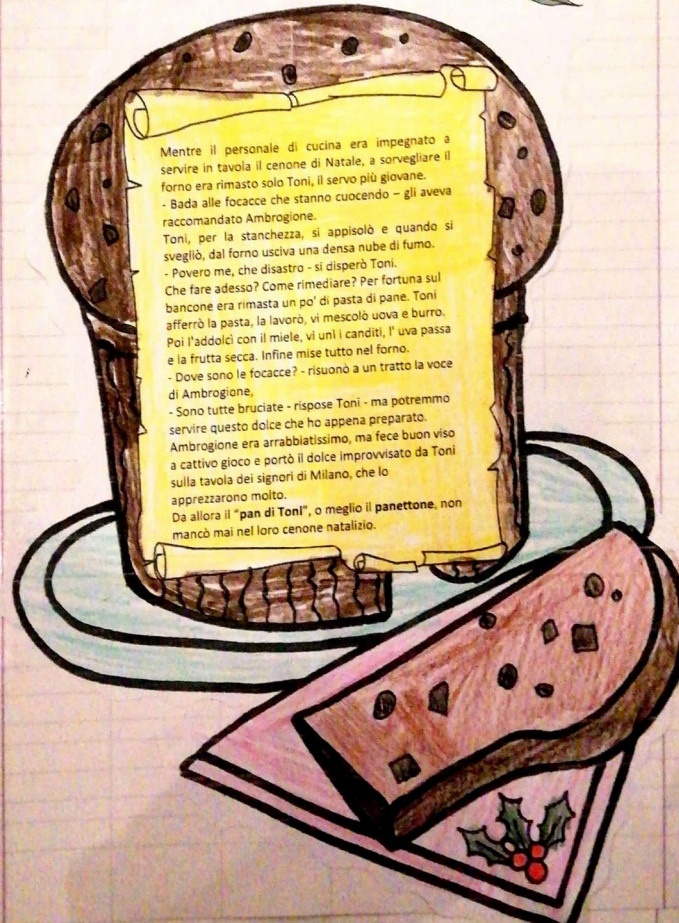 Mentre il personale di cucina era impegnato a
servire in tavola il cenone di Natale, a sorvegliare il
forno era rimasto solo Toni, il servo più giovane.
- Bada alle focacce che stanno cuocendo – gli aveva
raccomandato Ambrogione.
Toni, per la stanchezza, si appisolò e quando si
svegliò, dal forno usciva una densa nube di fumo.
- Povero me, che disastro - si disperò Toni.
Che fare adesso? Come rimediare? Per fortuna sul
bancone era rimasta un po' di pasta di pane. Toni
afferrò la pasta, la lavorò, vi mescolò uova e burro.
Poi l'addolcì con il miele, vi unì i canditi, l' uva passa
e la frutta secca. Infine mise tutto nel forno.
- Dove sono le focacce? - risuonò a un tratto la voce
di Ambrogione,
- Sono tutte bruciate - rispose Toni - ma potremmo
servire questo dolce che ho appena preparato.
Ambrogione era arrabbiatissimo, ma fece buon viso
a cattivo gioco e portò il dolce improvvisato da Toni
sulla tavola dei signori di Milano, che lo
apprezzarono molto.
Da allora il "pan di Toni", o meglio il panettone, non
mancò mai nel loro cenone natalizio.